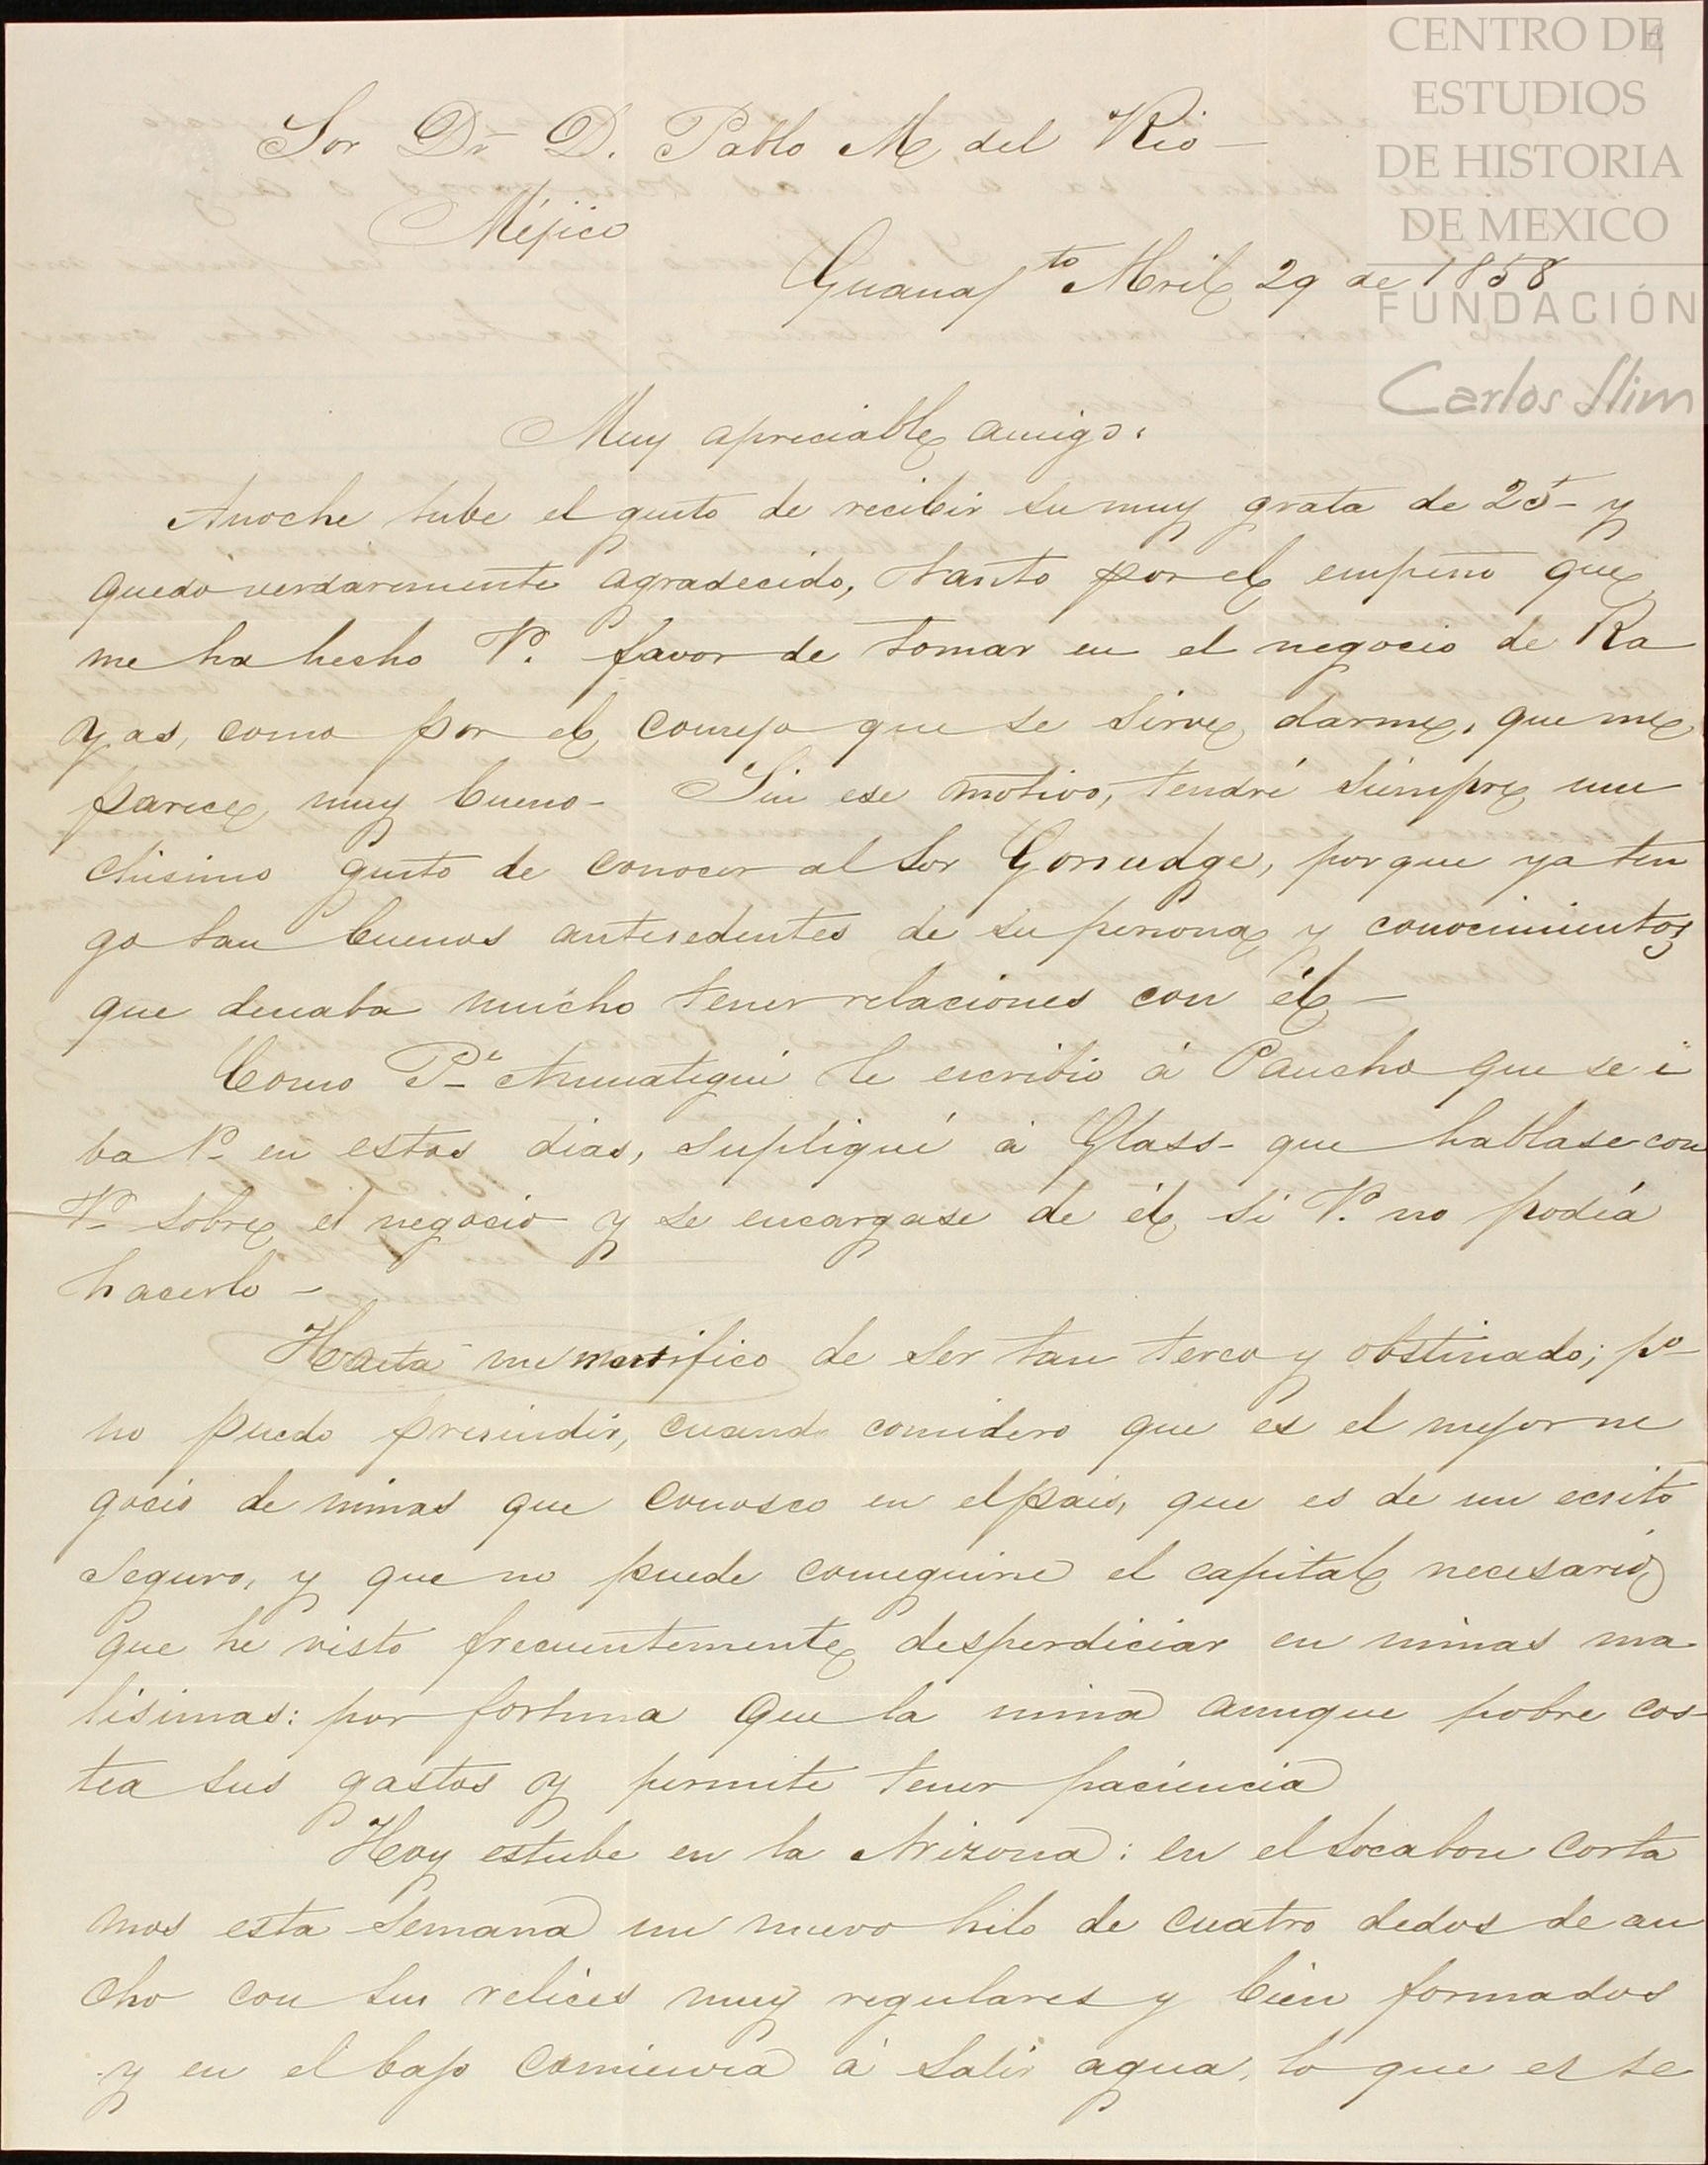 CENTRO DE
ESTUDIOS
DE HISTORIA
DE MEXICO
FUNDACIÓN
Carlos Slim
Sor Dr D. Pablo M. del Rio
Méjico
Guanajto Abril 29 de 1858
Muy apreciable amigo:
Anoche tube el gusto de recibir su muy grata de 25 y
quedo verdaremente agradecido, tanto por el empeño que
me ha hecho V. favor de tomar en el negocio de Ra
yas, como por el consejo que se sirve darme, que me
parece muy bueno - Sin ese motivo, tendré siempre mu
chisimo gusto de conocer al Sor, porque ya ten
go tan buenos antesedentes de su persona y conocimientos,
que deseaba mucho tener relaciones con él -
Como Pe le escribio á Pancho que se i
ba V. en estos dias, supliqué á Glass - que hablase con
V. sobre el negocio y se encargase de él si V. no podía
hacerlo -
Hasta me mortifico de ser tan terco y obstinado; po
no puedo presindir, cuando considero que es el mejor ne
gocio de minas que conosco en el pais, que es de un ecsito
seguro, y que no puede conseguirse el capital necesario,
que he visto frecuentemente desperdiciar en minas ma
lisimas: por fortuna que la mina aunque pobre cos-
tea sus gastos y permite tener paciencia
Hoy estube en la Arizona: en el socabon corta
mos esta semana un nuevo hilo de cuatro dedos de an
cho con sus relices muy regulares y bien formados
y en el bajo comienza á salir agua, lo que es se